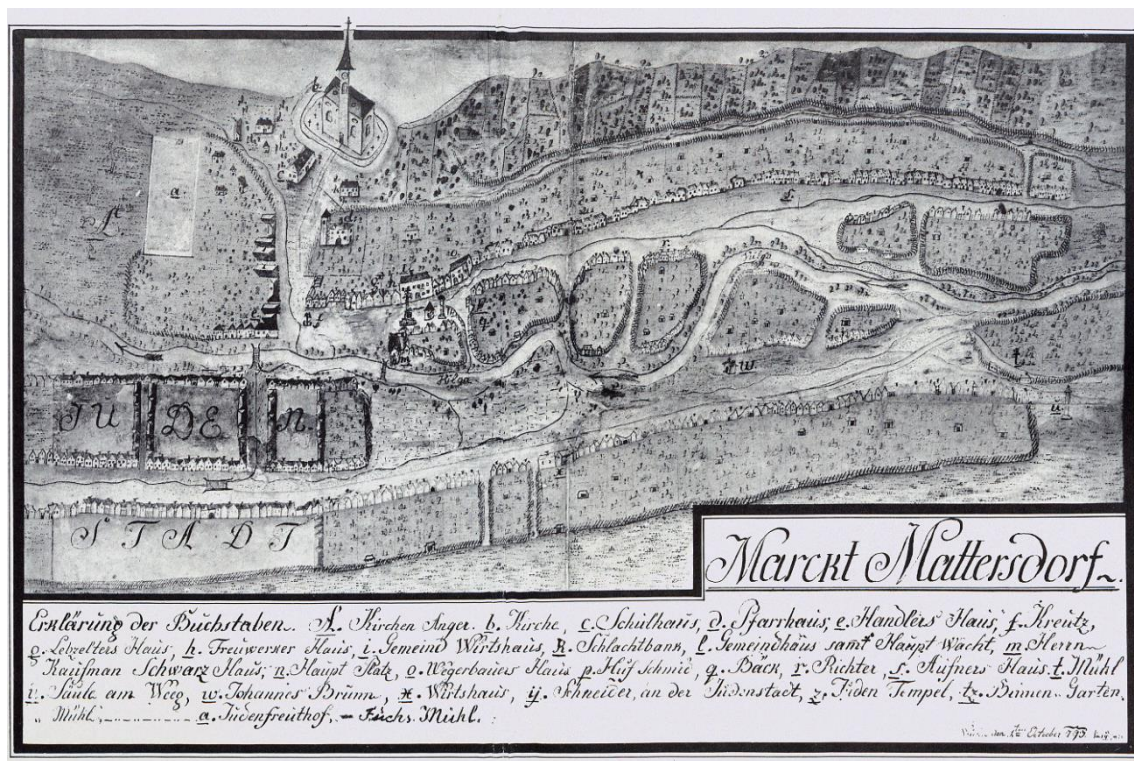 JU DE N.
STADT
Wulga
Marckt Mattersdorf
Erklärung der Buchstaben. A. Kirchen Anger. b. Kirche, c. Schulhaus, d. Pfarrhaus, e. Handlers Haus, f. Kreutz,
g. Lebzelters Haus, h. Freuwerker Haus, i. Gemeind Wirtshaus, k. Schlachtbank, l. Gemeindhaus samt Haupt Wacht, m. Herrn
Kaufman Schwarz Haus, n. Haupt Platz, o. Wegerbauers Haus p. Huf schmid, q. Back, r. Richter, s. Aufners Haus t. Mühl
v. Saule am Weeg, w. Johannes Brunn, x. Wirtshaus, ij. Schneider, an der Judenstadt, z. Juden Tempel, tz. Garten
Mühl a. Judenfreuthof, Fuchs Mühl.